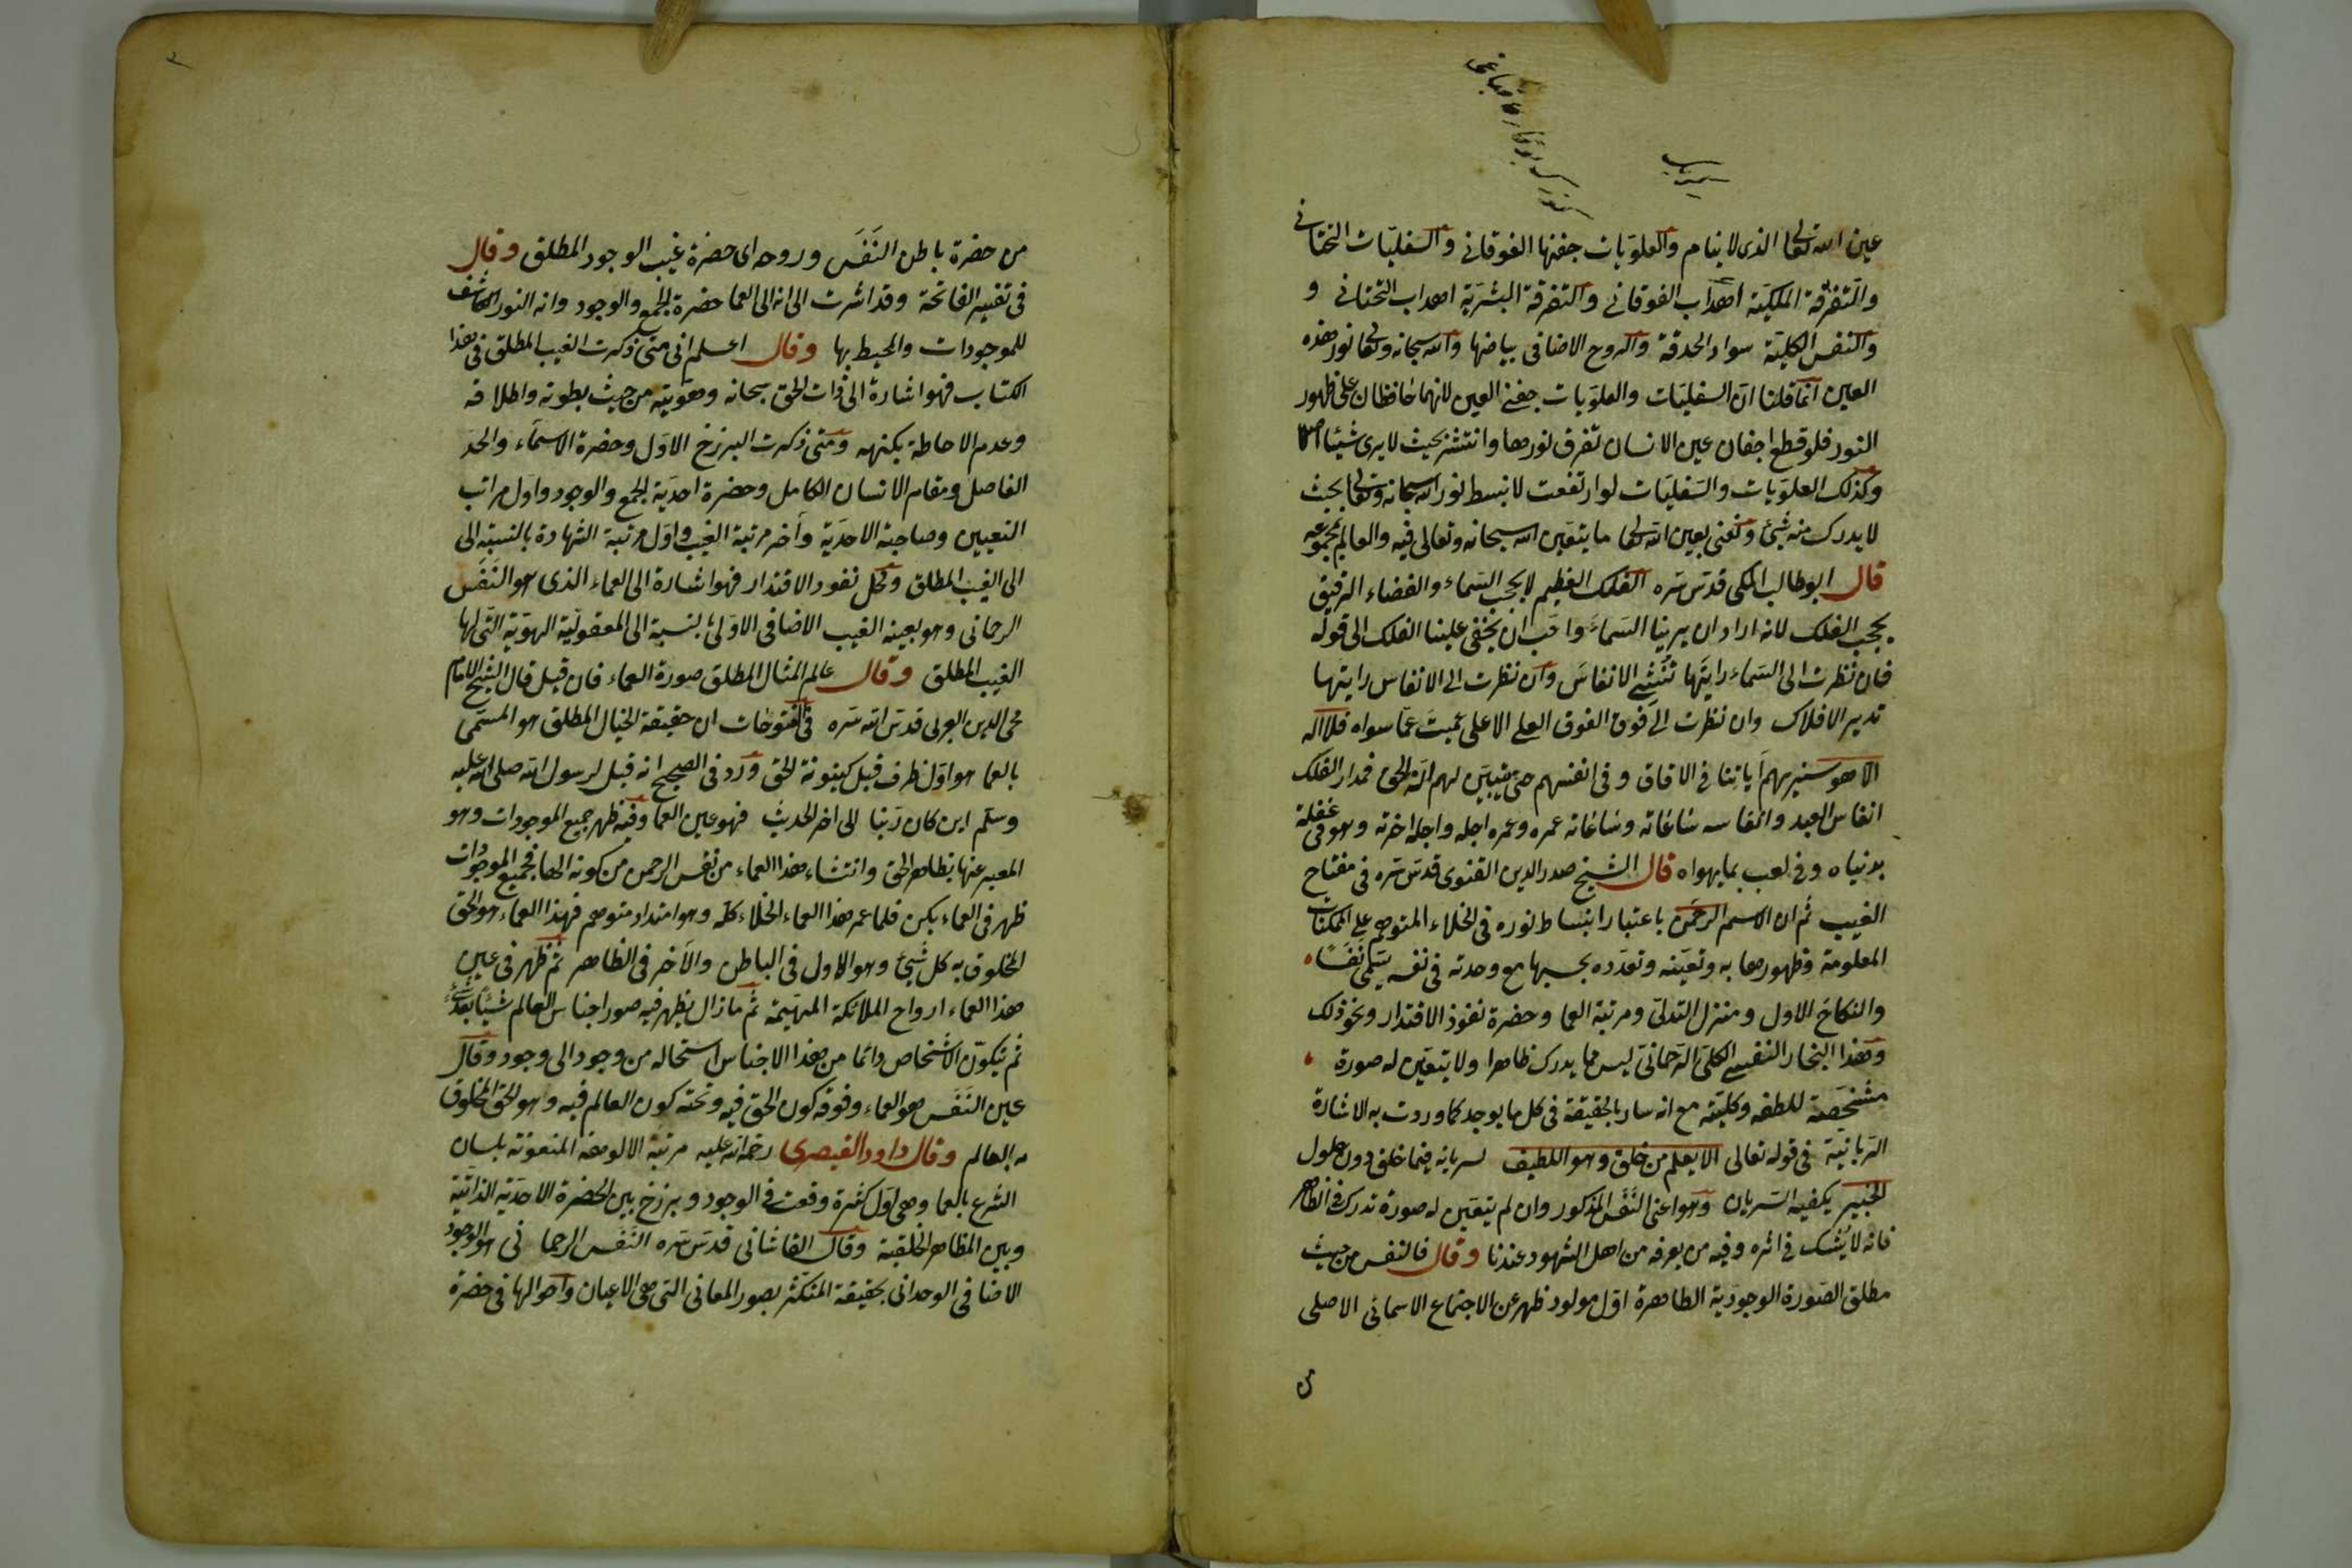 عين الله تعالى الذى لا ينام والعلويات جفنها الفوقانى والسفليات التحتانى
والمتفرقة الملكية اهداب الفوقانى والتفرقة البشرية اهداب التحتانى و
والنفس الكلية سواد الحدقة والروح الاضافى بياضها والله سبحانه وتعالى نور هذه
العين انما قلنا ان السفليات والعلويات جفنى العين لانهما حافظان على ظهور
النور فلو قطع اجفان عين الانسان تفرق نورها وانتشر بحيث لا يرى شيئا اصلا
وكذلك العلويات والسفليات لو ارتفعت لانبسط نور الله سبحانه وتعالى بحيث
لا يدرك منه شئ ونعنى بعين الله تعالى ما يتعين الله سبحانه وتعالى فيه والعالم بمجموعه
قال ابو طالب المكى قدس سره الفلك العظيم لا يحجب السماء والفضاء الرقيق
يحجب الفلك لانه اراد ان يرينا السماء واحب ان يخفى علينا الفلك الى قوله
فان نظرت الى السماء رايتها تنشى الانفاس وان نظرت الى الانفاس رايتها
تدير الافلاك وان نظرت الى فوق الفوق العلى الاعلى غبت عما سواه فلا اله
الا هو سنريهم آياتنا فى الافاق وفى انفسهم حتى يتبين لهم انه الحق فمدار الفلك
انفاس العبد وانفاسه ساعاته وساعاته عمره وعمره اجله واجله اخرته وهو فى غفلة
بدنياه وفى لعب بما يهواه قال الشيخ صدر الدين القنوى قدس سره فى مفتاح
الغيب ثم ان الاسم الرحمن باعتبار انبساط نوره فى الخلاء المتوهم على الممكنات
المعلومة وظهورها به وتعينه وتعدده بحسبها مع وحدته فى نفسه يسمى نفسا
والنكاح الاول ومنزل التدلى ومرتبة العما وحضرة نفوذ الاقتدار ونحو ذلك
وهذا البخار النفسى الكلى الرحمانى ليس مما يدرك ظاهرا ولا يتعين له صورة
مشخصة للطفه وكليته مع انه سار بالحقيقة فى كل ما يوجد كما وردت به الاشارة
الربانية فى قوله تعالى الا يعلم من خلق وهو اللطيف لسريانه فيما خلق دون حلول
الخبير بكيفية السريان وهو اعنى النفس المذكور وان لم يتعين له صورة تدرك فى الظاهر
فانه لا يشك فى اثره وفيه من يعرفه من اهل الشهود عندنا وقال فالنفس من حيث
مطلق الصورة الوجودية الظاهرة اول مولود ظهر عن الاجتماع الاسمائى الاصلى
من حضرة باطن النفس وروحه اى حضرة غيب الوجود المطلق وقال
فى تفسير الفاتحة وقد اشرت الى انه الى العما حضرة الجمع والوجود وانه النور الكاشف
للموجودات والمحيط بها وقال اعلم انى متى ذكرت الغيب المطلق فى هذا
الكتاب فهو اشارة الى ذات الحق سبحانه وهويته من حيث بطونه واطلاقه
وعدم الاحاطة بكنهه ومتى ذكرت البرزخ الاول وحضرة الاسماء والحد
الفاصل ومقام الانسان الكامل وحضرة احدية الجمع والوجود واول مراتب
التعيين وصاحبة الاحدية وآخر مرتبة الغيب واول مرتبة الشهادة بالنسبة الى
الى الغيب المطلق ومحل نفود الاقتدار فهو اشارة الى العماء الذى هو النفس
الرحمانى وهو بعينه الغيب الاضافى الاول بالنسبة الى المعقولية الهوية التى لها
الغيب المطلق وقال عالم المثال المطلق صورة العماء فان قيل قال الشيخ الامام
محى الدين العربى قدس الله سره فى الفتوحات ان حقيقة الخيال المطلق هو المسمى
بالعما هو اول ظرف قبل كينونة الحق ورد فى الصحيح انه قيل لرسول الله صلى الله عليه
وسلم اين كان ربنا الى اخر الحديث فهو عين العما وفيه ظهر جميع الموجودات وهو
المعبر عنها بظاهر الحق وانتشاء هذا العماء من نفس الرحمن من كونه الها فجميع الموجودات
ظهر فى العماء بكن فلما عمر هذا العماء الخلاء كله وهو امتداد متوهم فهذا العماء هو الحق
المخلوق به كل شئ وهو الاول فى الباطن والآخر فى الظاهر ثم ظهر فى عين
هذا العماء ارواح الملائكة المهيمة ثم ما زال يظهر فيه صور اجناس العالم شيئا بعد شئ
ثم يتكون الاشخاص دائما من هذا الاجناس استحاله من وجود الى وجود وقال
عين النفس هو العماء وفوقه كون الحق فيه وتحته كون العالم فيه وهو الحق المخلوق
به العالم وقال داود القيصرى رحمة الله عليه مرتبة الالوهة المنعوتة بلسان
الشرع بالعما وهى اول كثرة وقعت فى الوجود وبرزخ بين الحضرة الاحدية الذاتية
وبين المظاهر الخلقية وقال القاشانى قدس سره النفس الرحمانى هو الوجود
الاضافى الوحدانى بحقيقة المتكثر بصور المعانى التى هى الاعيان واحوالها فى حضرة